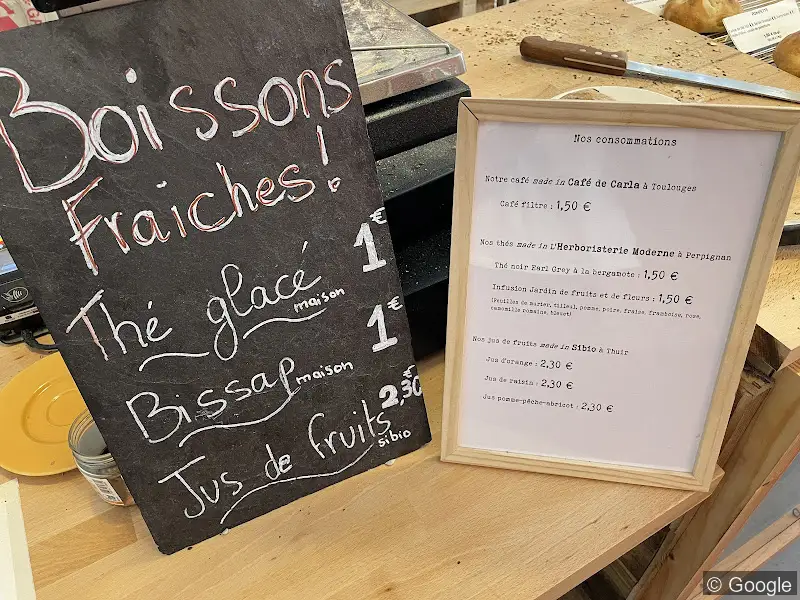 Boissons
Fraîches!
Thé glacé maison 1€
Bissap maison 1€
Jus de fruits sibio 2,30€
Nos consommations
Notre café made in Café de Carla à Toulouges
Café filtre : 1,50 €
Nos thés made in L'Herboristerie Moderne à Perpignan
Thé noir Earl Grey à la bergamote : 1,50 €
Infusion Jardin de fruits et de fleurs : 1,50 €
(Feuilles de murier, tilleul, pomme, poire, fraise, framboise, rose,
camomille romaine, bleuet)
Nos jus de fruits made in Sibio à Thuir
Jus d'orange : 2,30 €
Jus de raisin : 2,30 €
Jus pomme-pêche-abricot : 2,30 €
© Google